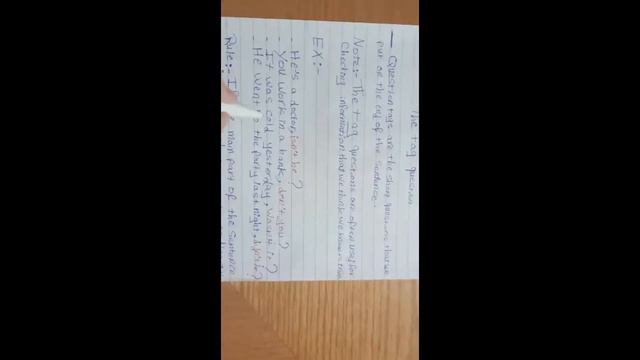 The tag question
— Question tags are the short questions that we
put on the end of the sentence.
Note:- The tag questions are often used for
Checking information that we think we know is true
EX:-
- He's a doctor, isn't he?
- You work in a bank, don't you?
- It was cold yesterday, wasn't it?
- He went to the party last night, didn't he?
Rule:- If main part of the sentence